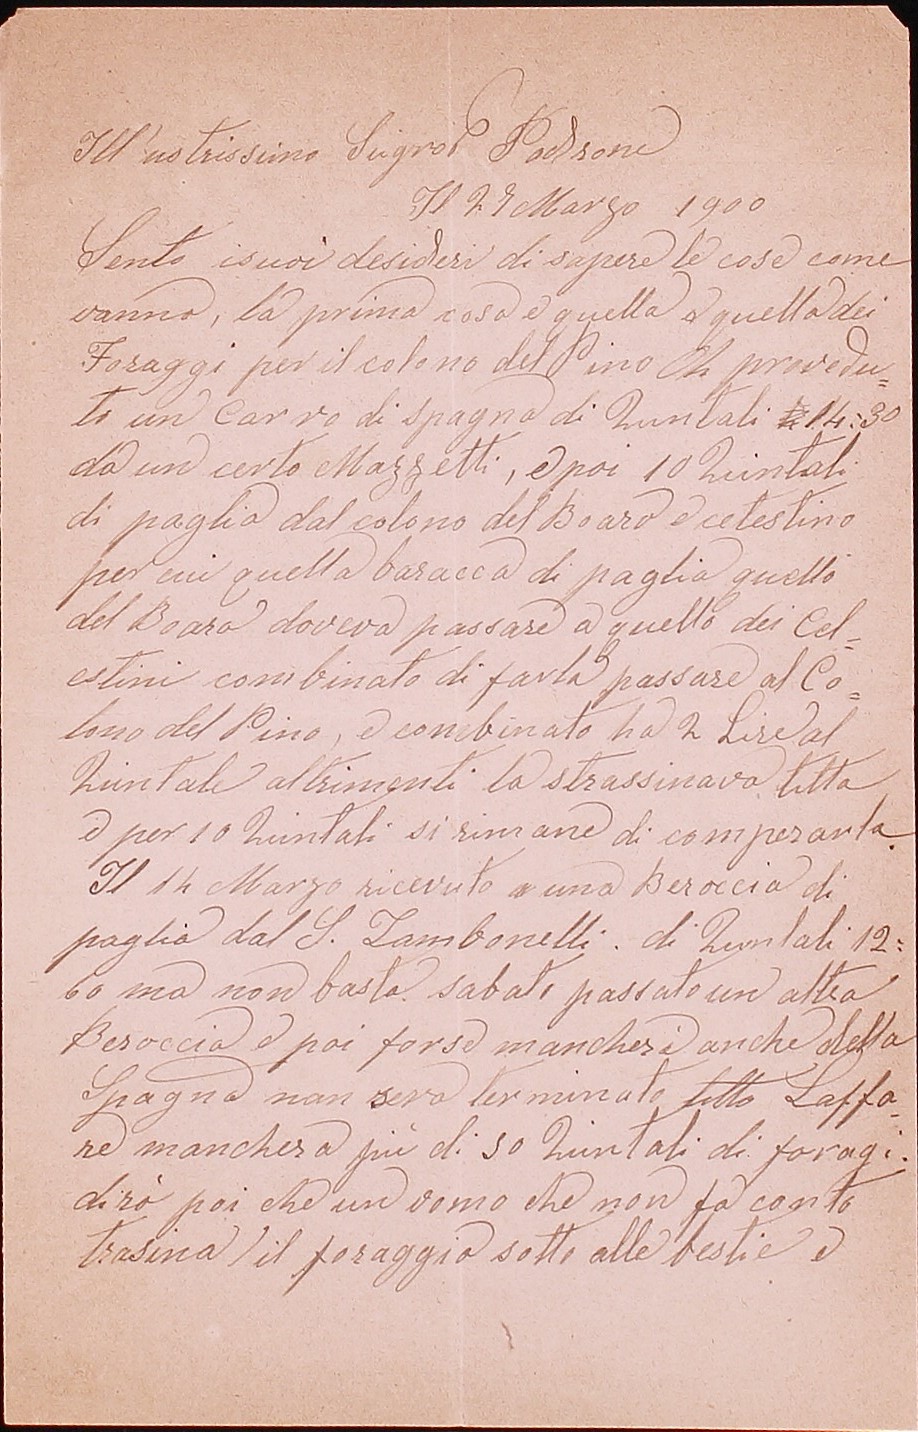 Ill'ustrissimo Signor Padrone
Il 27 Marzo 1900
Sento isuoi desideri di sapere le cose come
vanno, la prima cosa e quella e quella dei
Foraggi per il colono del Pino Oh provedu=
to un Carro di spagna di Quintali 14:30
da un certo Mazzetti, e poi 10 Quintali
di paglia dal colono del Boaro e celestino
per cui quella baracca di paglia quello
del Boaro doveva passare a quello dei Cel=
estini combinato di farla passare al Co=
lono del Pino, e combinato ha 2 Lire al
Quintale altrimenti la strassinava tutta
e per 10 Quintali si rimane di comperarla.
Il 14 Marzo ricevuto una Beroccia di
paglia dal S. Zambonelli. di Quintali 12:
60 ma non basta. sabato passato un altra
Beroccia e poi forse mancherà anche della
Spagna nan sera terminato tutto Laffa=
re manchera più di 50 Quintali di foragi.
dirò poi che un uomo che non fa conto
trasina il foraggio sotto alle bestie e